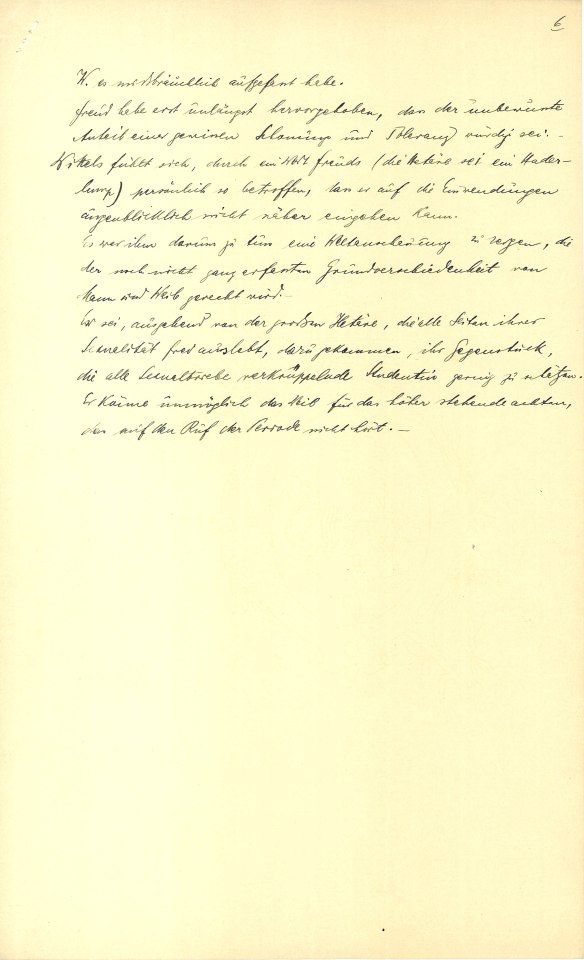 6
W. es missbräuchlich aufgefasst habe.
Freud habe erst unlängst hervorgehoben, dass der unbewusste
Anteil einer gewissen Schonung und Toleranz würdig sei. –
Wittels fühlt sich, durch ein Wort Freuds (die Hetäre sei ein Hader-
lump) persönlich so betroffen, dass er auf die Einwendungen
augenblicklich nicht näher eingehen kann.
Es war ihm darum zu tun eine Weltanschauung zu zeigen, die
der noch nicht ganz erfassten Grundverschiedenheit von
Mann und Weib gerecht wird. –
Er sei, ausgehend von der großen Hetäre, die alle Seiten ihrer
Sexualität frei auslebt, dazu gekommen, ihr Gegenstück,
die alle Sexualtriebe verkrüppelnde Studentin gering zu schätzen.
Er könne unmöglich das Weib für das höher stehende achten,
das auf den Ruf der Periode nicht hört. –